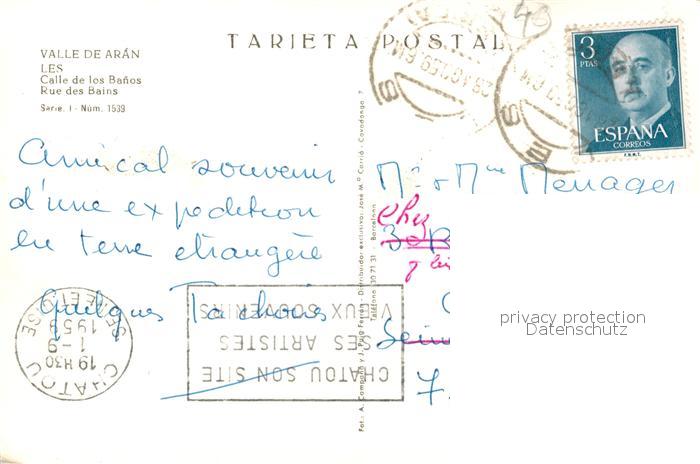 TARJETA POSTAL
VALLE DE ARÁN
LES
Calle de los Baños
Rue des Bains
Serie. I - Núm. 1539
40
3
PTAS
ESPAÑA
CORREOS
F.N.M.T.
Amical souvenir
d'une expedition
en terre étrangère
Quelques
Mr & Mme Menager
Chez
3
Seine
7
CHATOU
19H30
1-9
1959
SEINE ET OISE
CHATOU SON SITE
SES ARTISTES
VIEUX SOUVENIRS
Fot.: A. Campañá y J. Puig Ferrán - Distribuidor exclusivo: José M.ª Carrió - Covadonga, 7
Teléfono 30 71 31 - Barcelona
privacy protection
Datenschutz